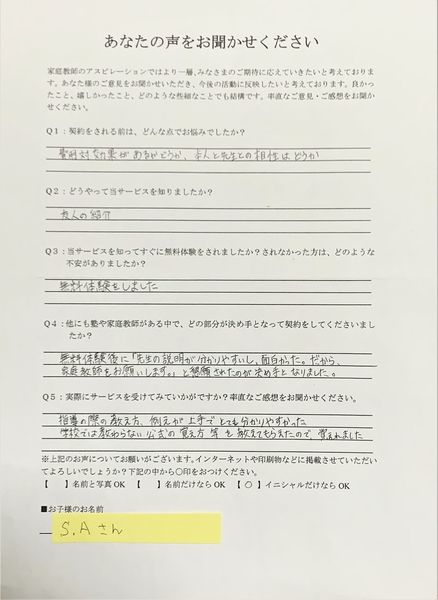 あなたの声をお聞かせください
家庭教師のアスピレーションではより一層、みなさまのご期待に応えていきたいと考えておりま
す。あなた様のご意見をお聞かせいただき、今後の活動に反映したいと考えております。良かっ
たこと、嬉しかったこと、どのような些細なことでも結構です。率直なご意見・ご感想をお聞か
せください。
Q1：契約をされる前は、どんな点でお悩みでしたか？
費用対効果があるかどうか、本人と先生との相性はどうか
Q2：どうやって当サービスを知りましたか？
友人の紹介
Q3：当サービスを知ってすぐに無料体験をされましたか？されなかった方は、どのような
不安がありましたか？
無料体験をしました
Q4：他にも塾や家庭教師がある中で、どの部分が決め手となって契約をしてくださいまし
たか？
無料体験後に「先生の説明が分かりやすいし、面白かった。だから、
家庭教師をお願いします。」と懇願されたのが決め手となりました。
Q5：実際にサービスを受けてみていかがですか？率直なご感想をお聞かせください。
指導の際の教え方、例えが上手でとても分かりやすかった
学校では教わらない公式の覚え方等を教えてもらえたので覚えれました
※上記のお声についてお願いがございます。インターネットや印刷物などに掲載させていただい
てよろしいでしょうか？下記の中から〇印をおつけください。
【　】名前と写真OK 【　】名前だけならOK 【〇】イニシャルだけならOK
■お子様のお名前
S.Aさん